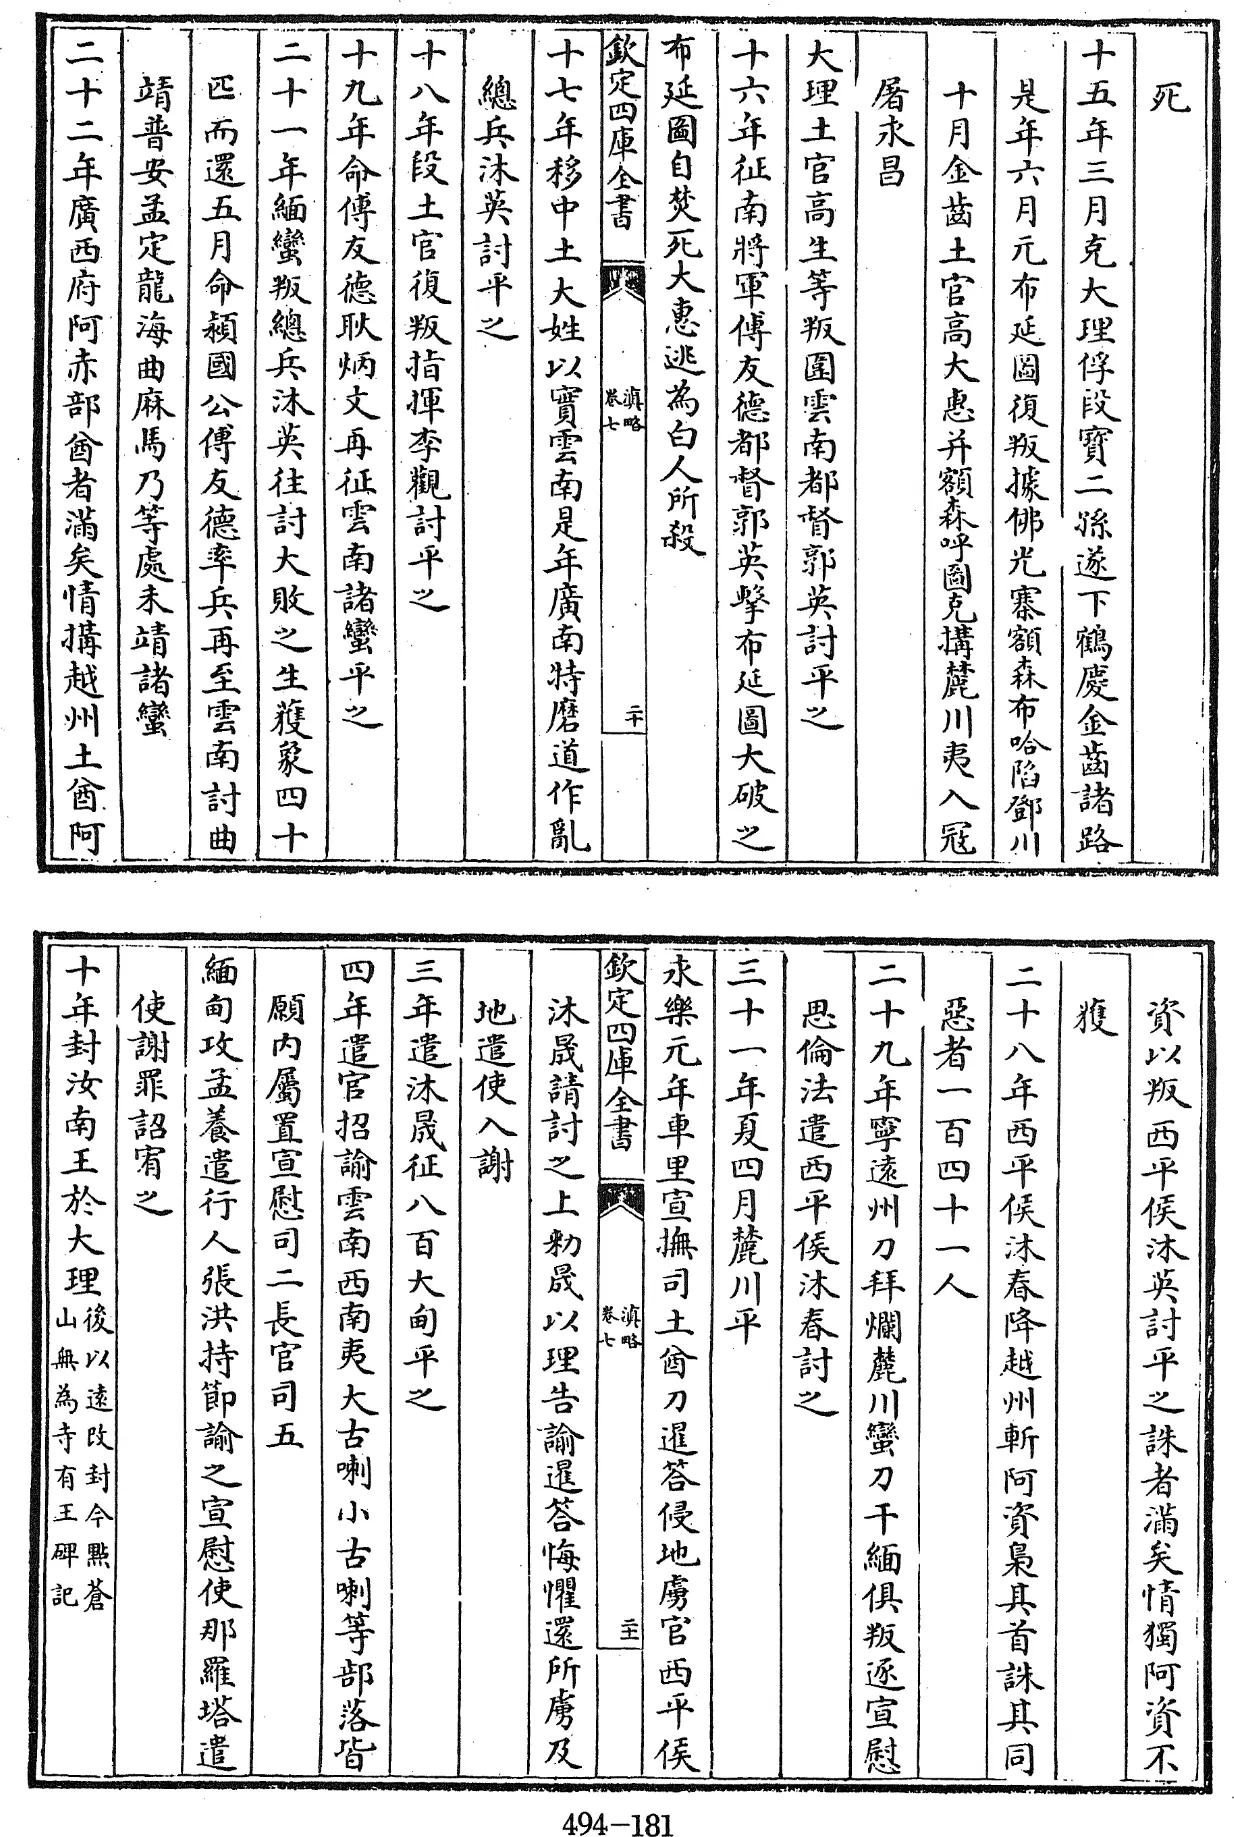 死
十五年三月克大理俘段寶二孫遂下鶴慶金齒諸路
是年六月元布延圖復叛據佛光寨額森布哈陷鄧川
十月金齒土官高大惠并額森呼圖克搆麓川夷入冦
屠永昌
大理土官高生等叛圍雲南都督郭英討平之
十六年征南將軍傅友德都督郭英擊布延圖大破之
布延圖自焚死大惠逃為白人所殺
欽定四庫全書
滇略
卷七
二十
十七年移中土大姓以實雲南是年廣南特磨道作亂
總兵沐英討平之
十八年段土官復叛指揮李觀討平之
十九年命傅友德耿炳文再征雲南諸蠻平之
二十一年緬蠻叛總兵沐英往討大敗之生獲象四十
匹而還五月命潁國公傅友德率兵再至雲南討曲
靖普安孟定龍海曲麻馬乃等處未靖諸蠻
二十二年廣西府阿赤部酋者滿矣情搆越州土酋阿
資以叛西平侯沐英討平之誅者滿矣情獨阿資不
獲
二十八年西平侯沐春降越州斬阿資梟其首誅其同
惡者一百四十一人
二十九年寧遠州刀拜爛麓川蠻刀干緬俱叛逐宣慰
思倫法遣西平侯沐春討之
三十一年夏四月麓川平
永樂元年車里宣撫司土酋刀暹答侵地虜官西平侯
欽定四庫全書
滇略
卷七
二十一
沐晟請討之上勑晟以理告諭暹答悔懼還所虜及
地遣使入謝
三年遣沐晟征八百大甸平之
四年遣官招諭雲南西南夷大古喇小古喇等部落皆
願内屬置宣慰司二長官司五
緬甸攻孟養遣行人張洪持節諭之宣慰使那羅塔遣
使謝罪詔宥之
十年封汝南王於大理後以遠改封今㸃蒼
山無為寺有王碑記
494-181